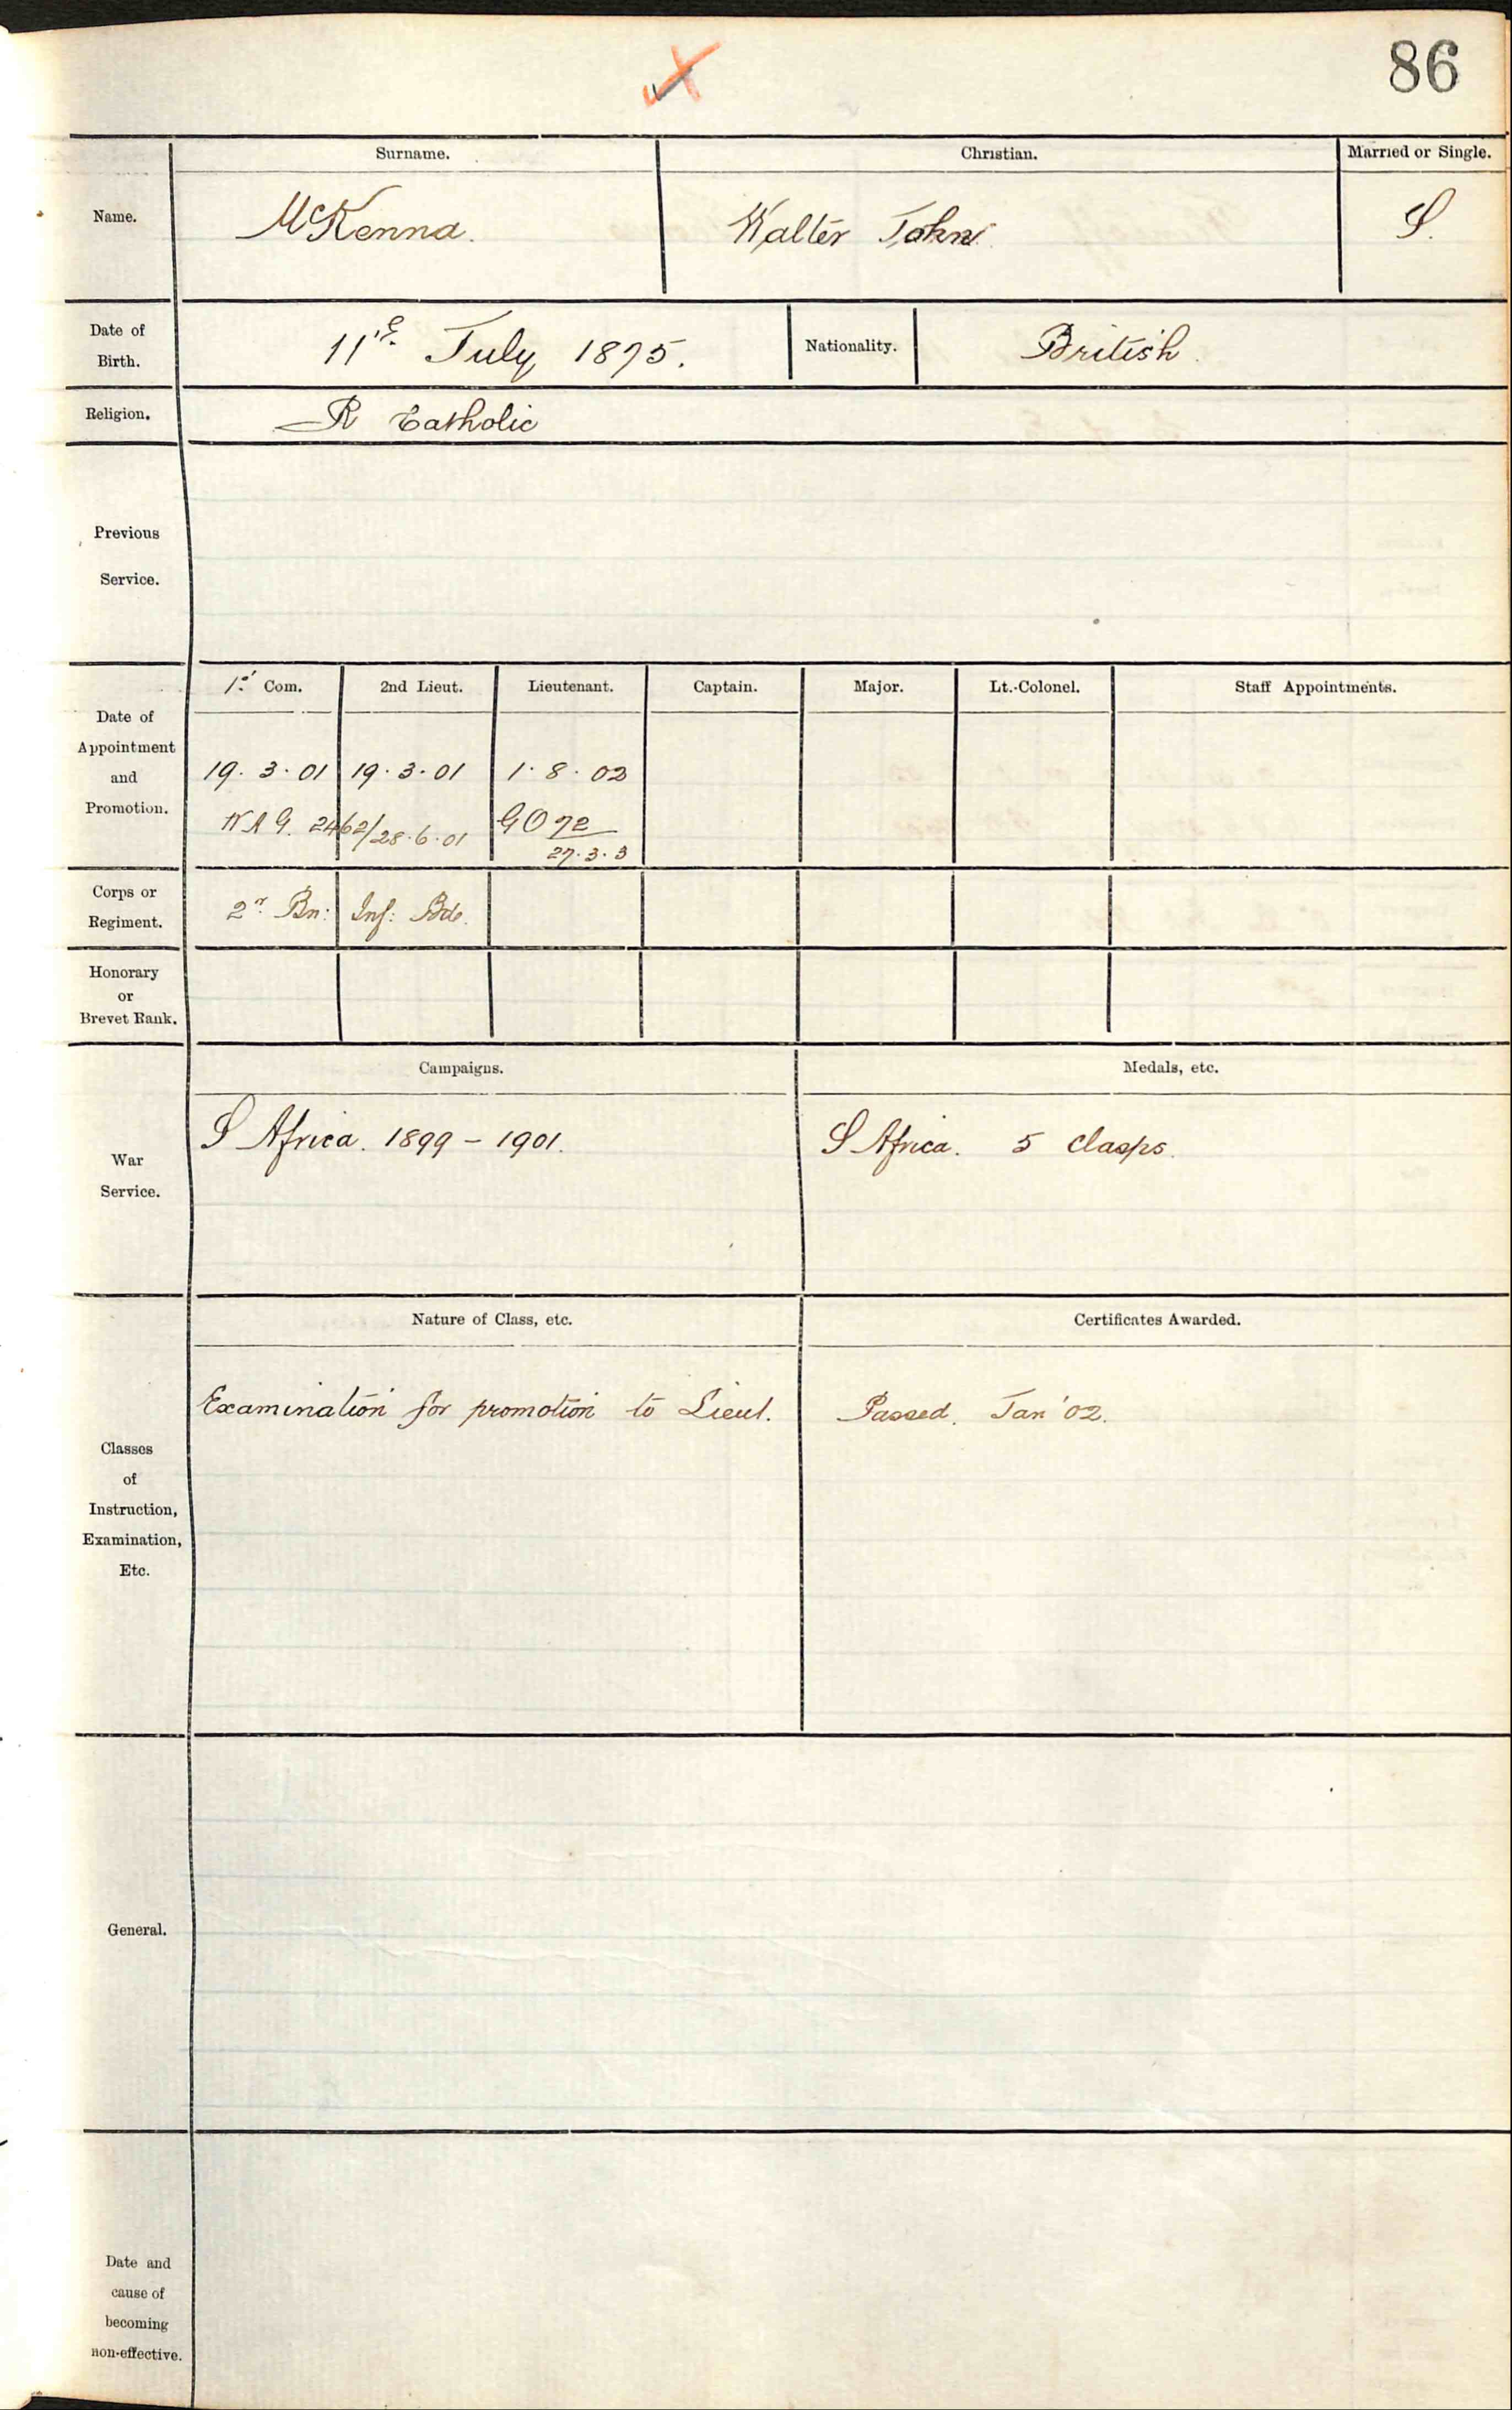 86
Surname. Christian. Married or Single.
Name. McKenna. Walter John S.
Date of Birth. 11th July 1875. Nationality. British.
Religion. R Catholic
Previous
Service.
1st Com. 2nd Lieut. Lieutenant. Captain. Major. Lt.-Colonel. Staff Appointments.
Date of
Appointment
and
Promotion.
19. 3. 01 19. 3. 01 1. 8. 02
2462/28.6.01 GO 72
27.3.3
Corps or
Regiment.
2n Bn: Inf: Bde.
Honorary
or
Brevet Rank.
Campaigns. Medals, etc.
War
Service.
S Africa. 1899 - 1901. S Africa. 5 clasps.
Nature of Class, etc. Certificates Awarded.
Examination for promotion to Lieut. Passed. Jan '02.
Classes
of
Instruction,
Examination,
Etc.
General.
Date and
cause of
becoming
non-effective.